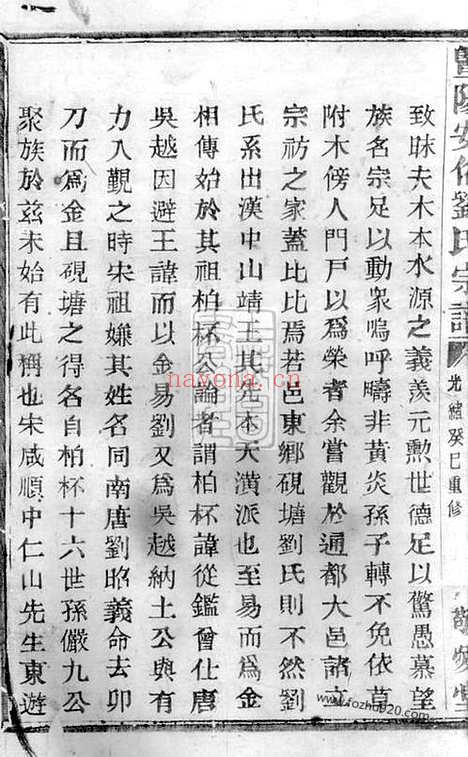 暨陽安俗劉氏宗譜
光緒癸巳重修
敬勝堂
致昧夫木本水源之義羨元勲世德足以驚愚慕望
族名宗足以動衆嗚呼疇非黃炎孫子轉不免依草
附木傍人門戸以爲榮者余嘗觀於通都大邑諸立
宗祊之家蓋比比焉若邑東鄉硯塘劉氏則不然劉
氏系出漢中山靖王其先本天潢派也至易而爲金
相傳始於其祖柏杯公論者謂柏杯諱從鑑曾仕唐
吳越因避王諱而以金易劉又爲吳越納土公與有
力入覲之時宋祖嫌其姓名同南唐劉昭義命去卯
刀而爲金且硯塘之得名自柏杯十六世孫儼九公
聚族於茲未始有此稱也宋咸順中仁山先生東遊
nayona.cn
www.fozhu920.com